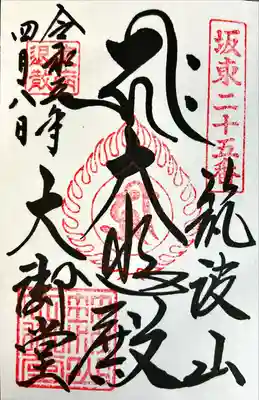 坂東二十五番
筑波山
大悲殿
大御堂
令和 年
四月八日